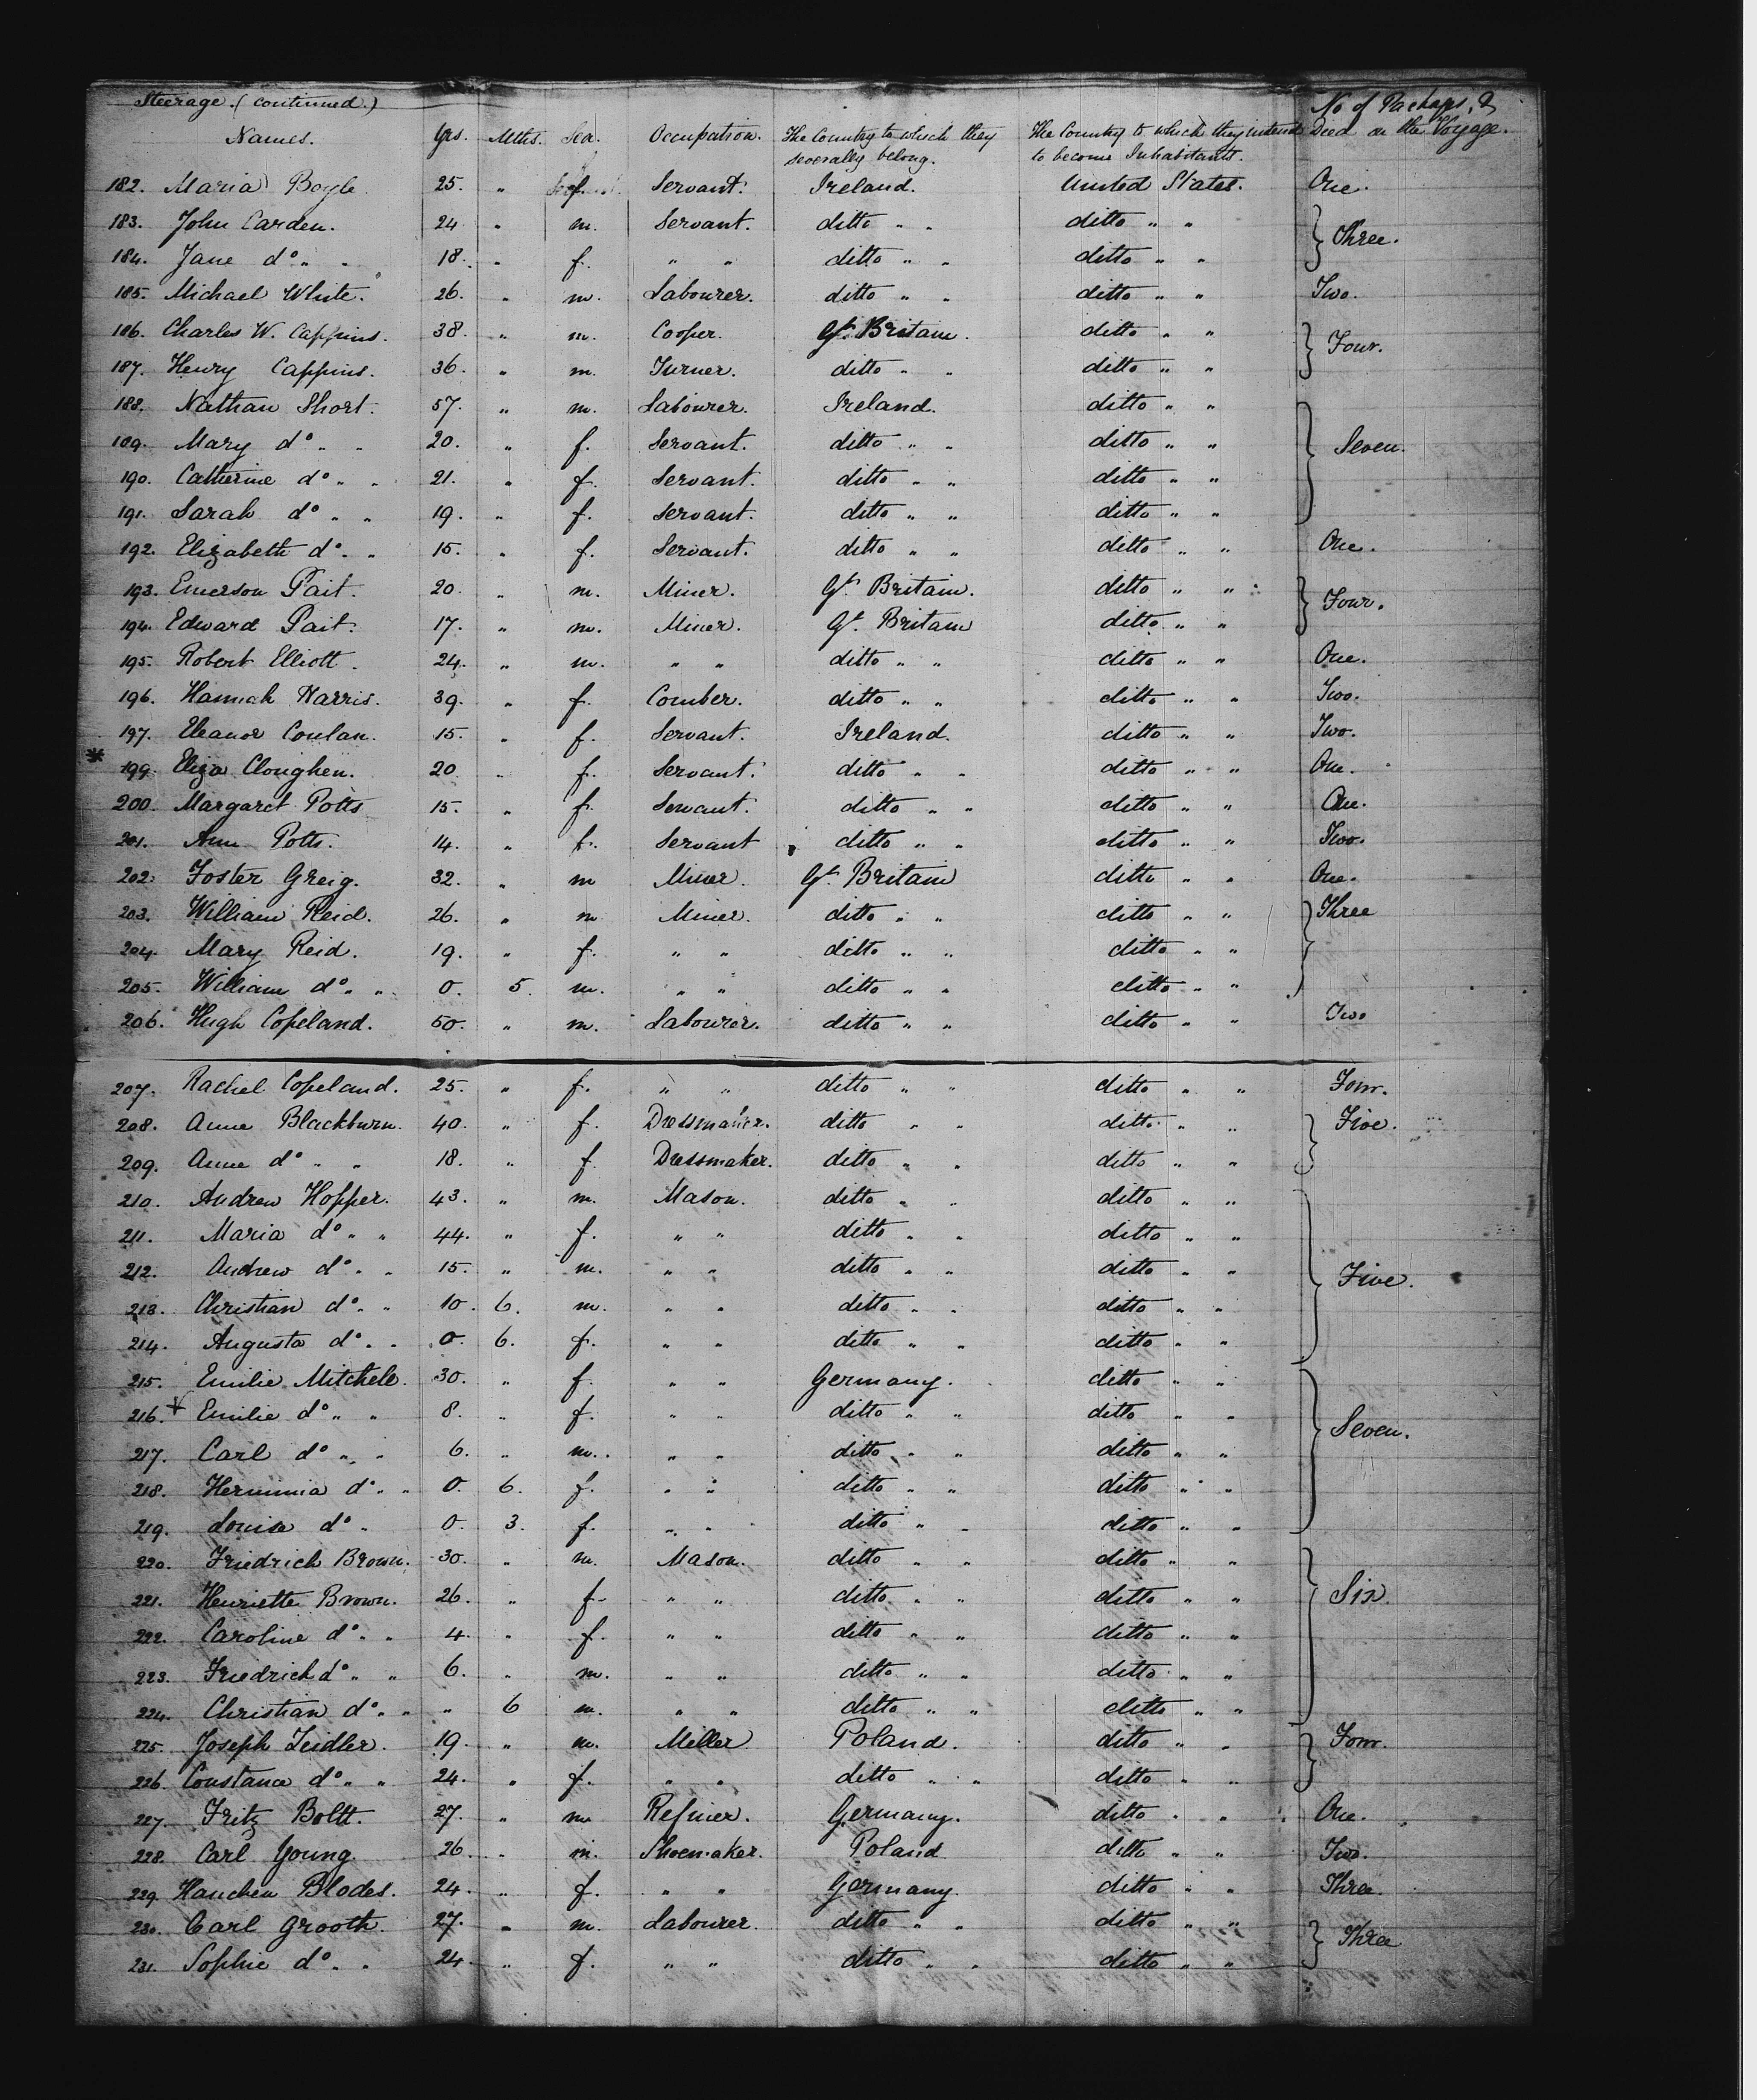 Steerage. (continued.)
Names. Yrs. Mths. Sex. Occupation. The Country to which they severally belong. The Country to which they intend to become Inhabitants. No of Packages, & Died on the Voyage.
182. Maria Boyle 25. " f. Servant. Ireland. United States. One.
183. John Carden. 24 " m. Servant. ditto " " ditto " "
184. Jane do " " 18. " f. " " ditto " " ditto " " } Three.
185. Michael White. 26. " m. Labourer. ditto " " ditto " " Two.
186. Charles W. Cappins. 38. " m. Cooper. Gt. Britain. ditto " "
187. Henry Cappins. 36. " m. Turner. ditto " " ditto " " } Four.
188. Nathan Short. 57. " m. Labourer. Ireland. ditto " "
189. Mary do " " 20. " f. Servant. ditto " " ditto " " } Seven.
190. Catherine do " " 21. " f. Servant. ditto " " ditto " "
191. Sarah do " " 19. " f. Servant. ditto " " ditto " "
192. Elizabeth do " " 15. " f. Servant. ditto " " ditto " " One.
193. Emerson Pait. 20. " m. Miner. Gt. Britain. ditto " "
194. Edward Pait. 17. " m. Miner. Gt. Britain ditto " " } Four.
195. Robert Elliott. 24. " m. " " ditto " " ditto " " One.
196. Hannah Harris. 39. " f. Comber. ditto " " ditto " " Two.
197. Eleanor Conlan. 15. " f. Servant. Ireland. ditto " " Two.
* 199. Eliza Cloughen. 20 " f. Servant. ditto " " ditto " " One.
200. Margaret Potts 15. " f. Servant. ditto " " ditto " " One.
201. Ann Potts. 14. " f. Servant ditto " " ditto " " Two.
202. Foster Greig. 32. " m Miner. Gt. Britain ditto " " One.
203. William Reid. 26. " m Miner. ditto " " ditto " " } Three
204. Mary Reid. 19. " f. " " ditto " " ditto " "
205. William do " " 0. 5. m. " " ditto " " ditto " "
206. Hugh Copeland. 50. " m. Labourer. ditto " " ditto " " Two
207. Rachel Copeland. 25. " f. " " ditto " " ditto " " Four.
208. Anne Blackburn. 40. " f. Dressmaker. ditto " " ditto " " } Five.
209. Anne do " " 18. " f Dressmaker. ditto " " ditto " "
210. Andrew Hopper. 43. " m. Mason. ditto " " ditto " "
211. Maria do " " 44. " f. " " ditto " " ditto " "
212. Andrew do " " 15. " m. " " ditto " " ditto " " } Five.
213. Christian do " " 10. 6. m. " " ditto " " ditto " "
214. Augusta do " " 0. 6. f. " " ditto " " ditto " "
215. Emilie Mitchele. 30. " f. " " Germany. ditto " "
216. Emilie do " " 8. " f. " " ditto " " ditto " " } Seven.
217. Carl do " " 6. " m. " " ditto " " ditto " "
218. Herminia do " " 0. 6. f. " " ditto " " ditto " "
219. Louisa do " 0. 3. f. " " ditto " " ditto " "
220. Friedrich Brown. 30. " m. Mason. ditto " " ditto " "
221. Henriette Brown. 26. " f. " " ditto " " ditto " " } Six.
222. Caroline do " " 4. " f. " " ditto " " ditto " "
223. Friedrich do " " 6. " m. " " ditto " " ditto " "
224. Christian do " " " 6 m. " " ditto " " ditto " "
225. Joseph Zeidler. 19. " m. Miller Poland. ditto " " } Four.
226. Constance do " " 24. " f. " " ditto " " ditto " "
227. Fritz Boltt. 27. " m Refiner. Germany. ditto " " One.
228. Carl Young. 26. " m. Shoemaker. Poland ditto " " Two.
229. Hanchen Blodes. 24. " f. " " Germany. ditto " " Three.
230. Carl Grooth. 27. " m. Labourer. ditto " " ditto " " } Three
231. Sophie do " " 24. " f. " " ditto " " ditto " "